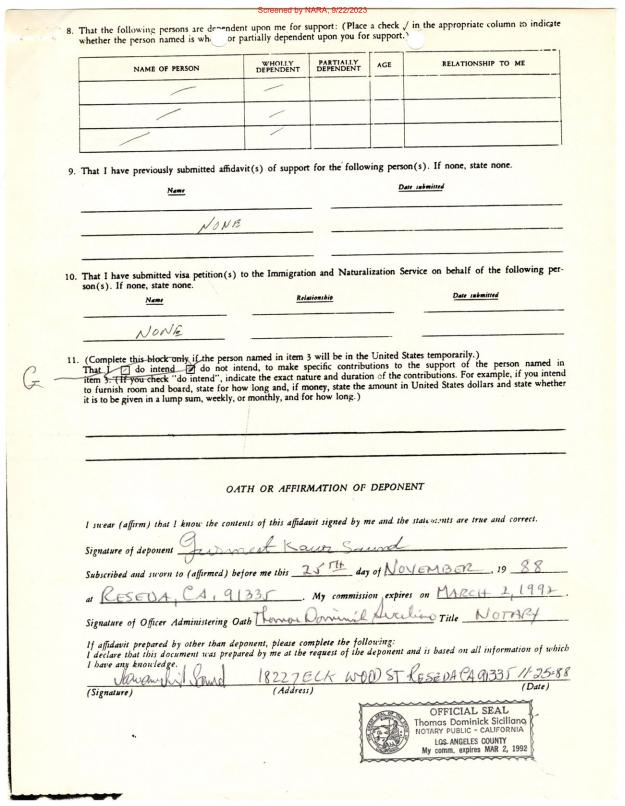 Screened by NARA, 9/22/2023
8. That the following persons are dependent upon me for support: (Place a check √ in the appropriate column to indicate
whether the person named is wh or partially dependent upon you for support.)
NAME OF PERSON WHOLLY DEPENDENT PARTIALLY DEPENDENT AGE RELATIONSHIP TO ME
9. That I have previously submitted affidavit(s) of support for the following person(s). If none, state none.
Name Date submitted
NONE
10. That I have submitted visa petition(s) to the Immigration and Naturalization Service on behalf of the following per-
son(s). If none, state none.
Name Relationship Date submitted
NONE
11. (Complete this block only if the person named in item 3 will be in the United States temporarily.)
That I do intend do not intend, to make specific contributions to the support of the person named in
G item 3. (If you check "do intend", indicate the exact nature and duration of the contributions. For example, if you intend
to furnish room and board, state for how long and, if money, state the amount in United States dollars and state whether
it is to be given in a lump sum, weekly, or monthly, and for how long.)
OATH OR AFFIRMATION OF DEPONENT
I swear (affirm) that I know the contents of this affidavit signed by me and the statements are true and correct.
Signature of deponent Gurmeet Kaur Saund
Subscribed and sworn to (affirmed) before me this 25TH day of NOVEMBER, 19 88
at RESEDA, CA, 91335. My commission expires on MARCH 2, 1992
Signature of Officer Administering Oath Thomas Dominick Siciliano Title NOTARY
If affidavit prepared by other than deponent, please complete the following:
I declare that this document was prepared by me at the request of the deponent and is based on all information of which
I have any knowledge.
Saund 18227 ELK WOOD ST RESEDA CA 91335 11-25-88
(Signature) (Address) (Date)
OFFICIAL SEAL
Thomas Dominick Siciliano
NOTARY PUBLIC - CALIFORNIA
LOS ANGELES COUNTY
My comm. expires MAR 2, 1992